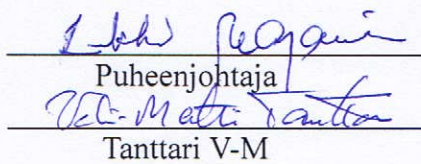 Puheenjohtaja
Veli-Matti Tanttari
Tanttari V-M